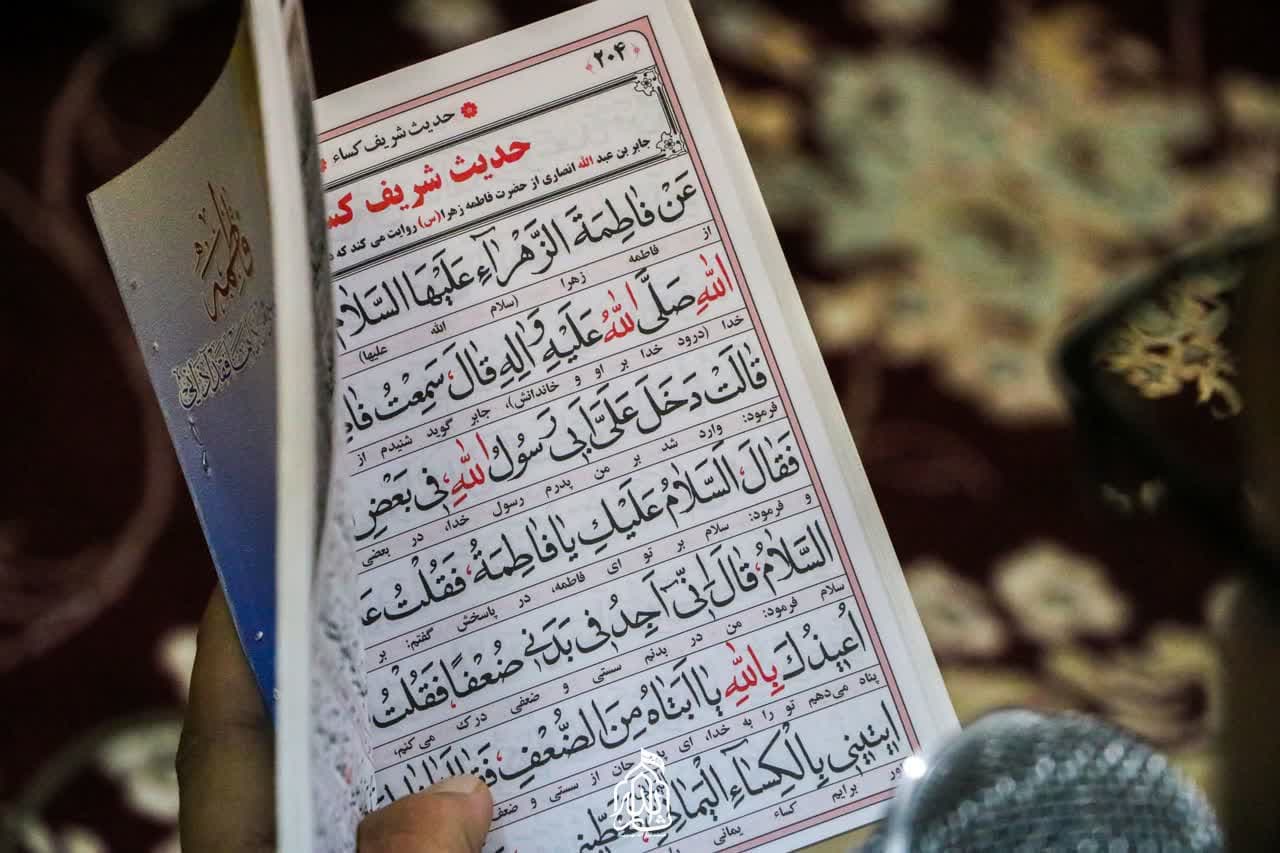 ﴿۲۰۴﴾
حدیث شریف کساء
حدیث شریف
جابر بن عبد الله انصاری از حضرت فاطمه زهرا(س) روایت می کند که
عَنْ فاطِمَةَ الزَّهْرآءِ عَلَيْهَا السَّلامُ
از فاطمه زهرا (سلام الله علیها)
اللهِ صَلَّى اللهُ عَلَيْهِ وَالِهِ قالَ سَمِعْتُ
خدا (درود خدا بر او و خاندانش)، جابر گوید شنیدم از
قالَتْ دَخَلَ عَلَىَّ اَبى رَسُولُ اللهِ، فى بَعْضِ
فرمود: وارد شد بر من پدرم رسول خدا، در بعضی
فَقالَ، اَلسَّلامُ عَلَيْكِ يا فاطِمَةُ، فَقُلْتُ
و فرمود: سلام بر تو ای فاطمه، در پاسخش گفتم: بر
السَّلامُ، قالَ اِنّى اَجِدُ فى بَدَنى ضُعْفًا، فَقُلْتُ
سلام فرمود: من در بدنم سستی و ضعفی درک می‌کنم،
اُعيذُكَ بِاللهِ يا اَبَتاهُ مِنَ الضُّعْفِ،
پناه می‌دهم تو را به خدا، ای از سستی و ضعف
ايتينى بِالْكِسآءِ الْيَمانى
برایم کساء یمانی
فاطمه